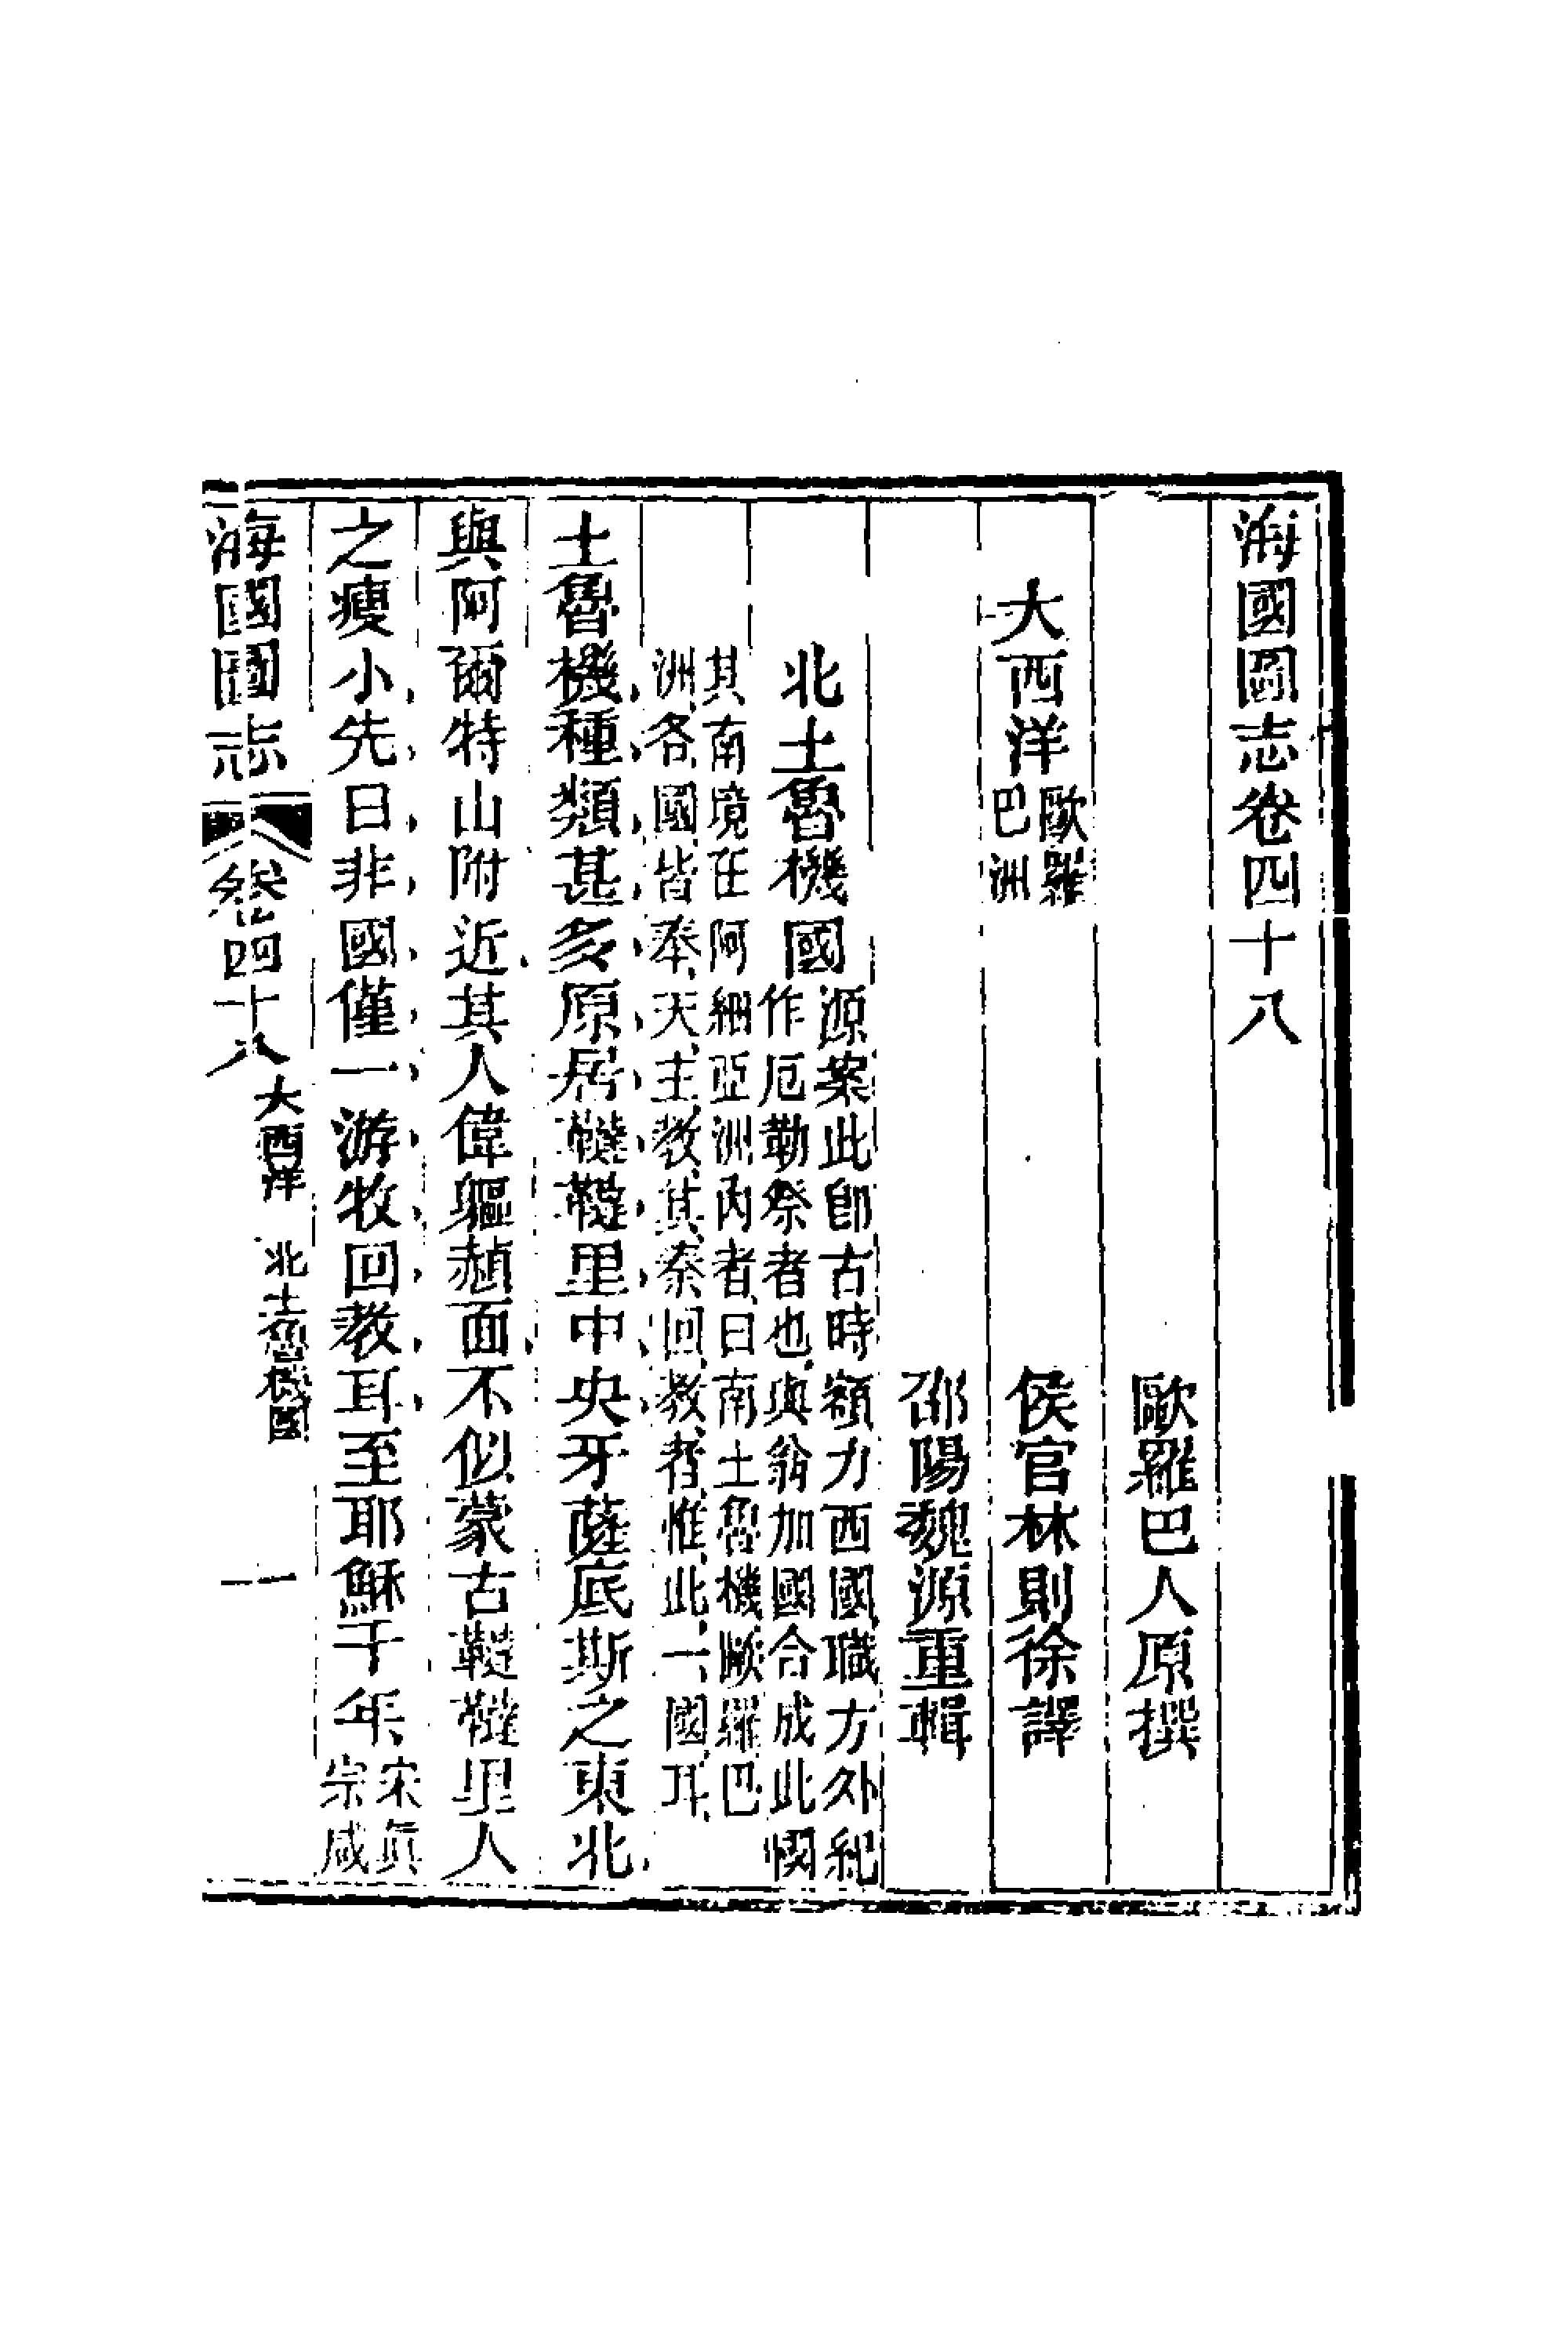 海國圖志卷四十八
歐羅巴人原撰
大西洋歐羅巴洲
侯官林則徐譯
邵陽魏源重輯
北土魯機國源案此即古時額力西國職方外紀作厄勒祭者也與翁加國合成此國
其南境在阿細亞洲內者曰南土魯機歐羅巴洲各國皆奉天主教其奉回教者惟此一國耳
土魯機種類甚多原居韃韃里中央牙薩底斯之東北
與阿爾特山附近其人偉軀赬面不似蒙古韃韃里人
之瘦小先日非國僅一游牧回教耳至耶穌千年宋真宗咸
海國圖志 卷四十八 大西洋 北土魯機國 一